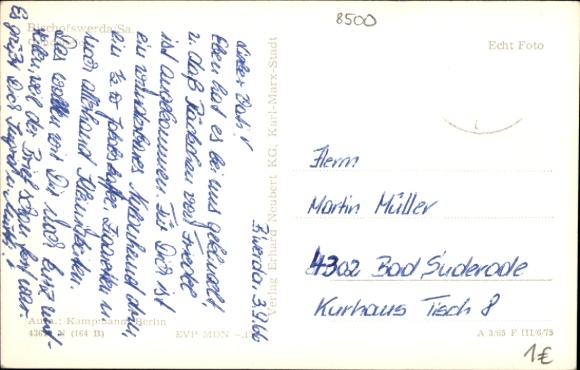 8500
Bischofswerda/Sa.
Echt Foto
B'werda, 3.9.66
Lieber Vati!
Eben hat es bei uns geklingelt
u. das Päckchen von Friedel
ist angekommen. Für Dich ist
ein wunderbares Nylonhemd drin,
ein
fabelhafte Zigaretten u.
noch allerhand Kleinigkeiten.
Das wollten wir Dir noch kurz mit-
teilen, weil der Brief schon fort war.
Es grüßt Dich Ingrid u. Mutti!
Verlag Erhard Neubert KG, Karl-Marx-Stadt
Herrn
Martin Müller
4302 Bad Suderode
Kurhaus Tisch 8
Aufn.: Kampmann, Berlin
(164 B)
EVP MDN
A 3/65 F III/6/75
1€